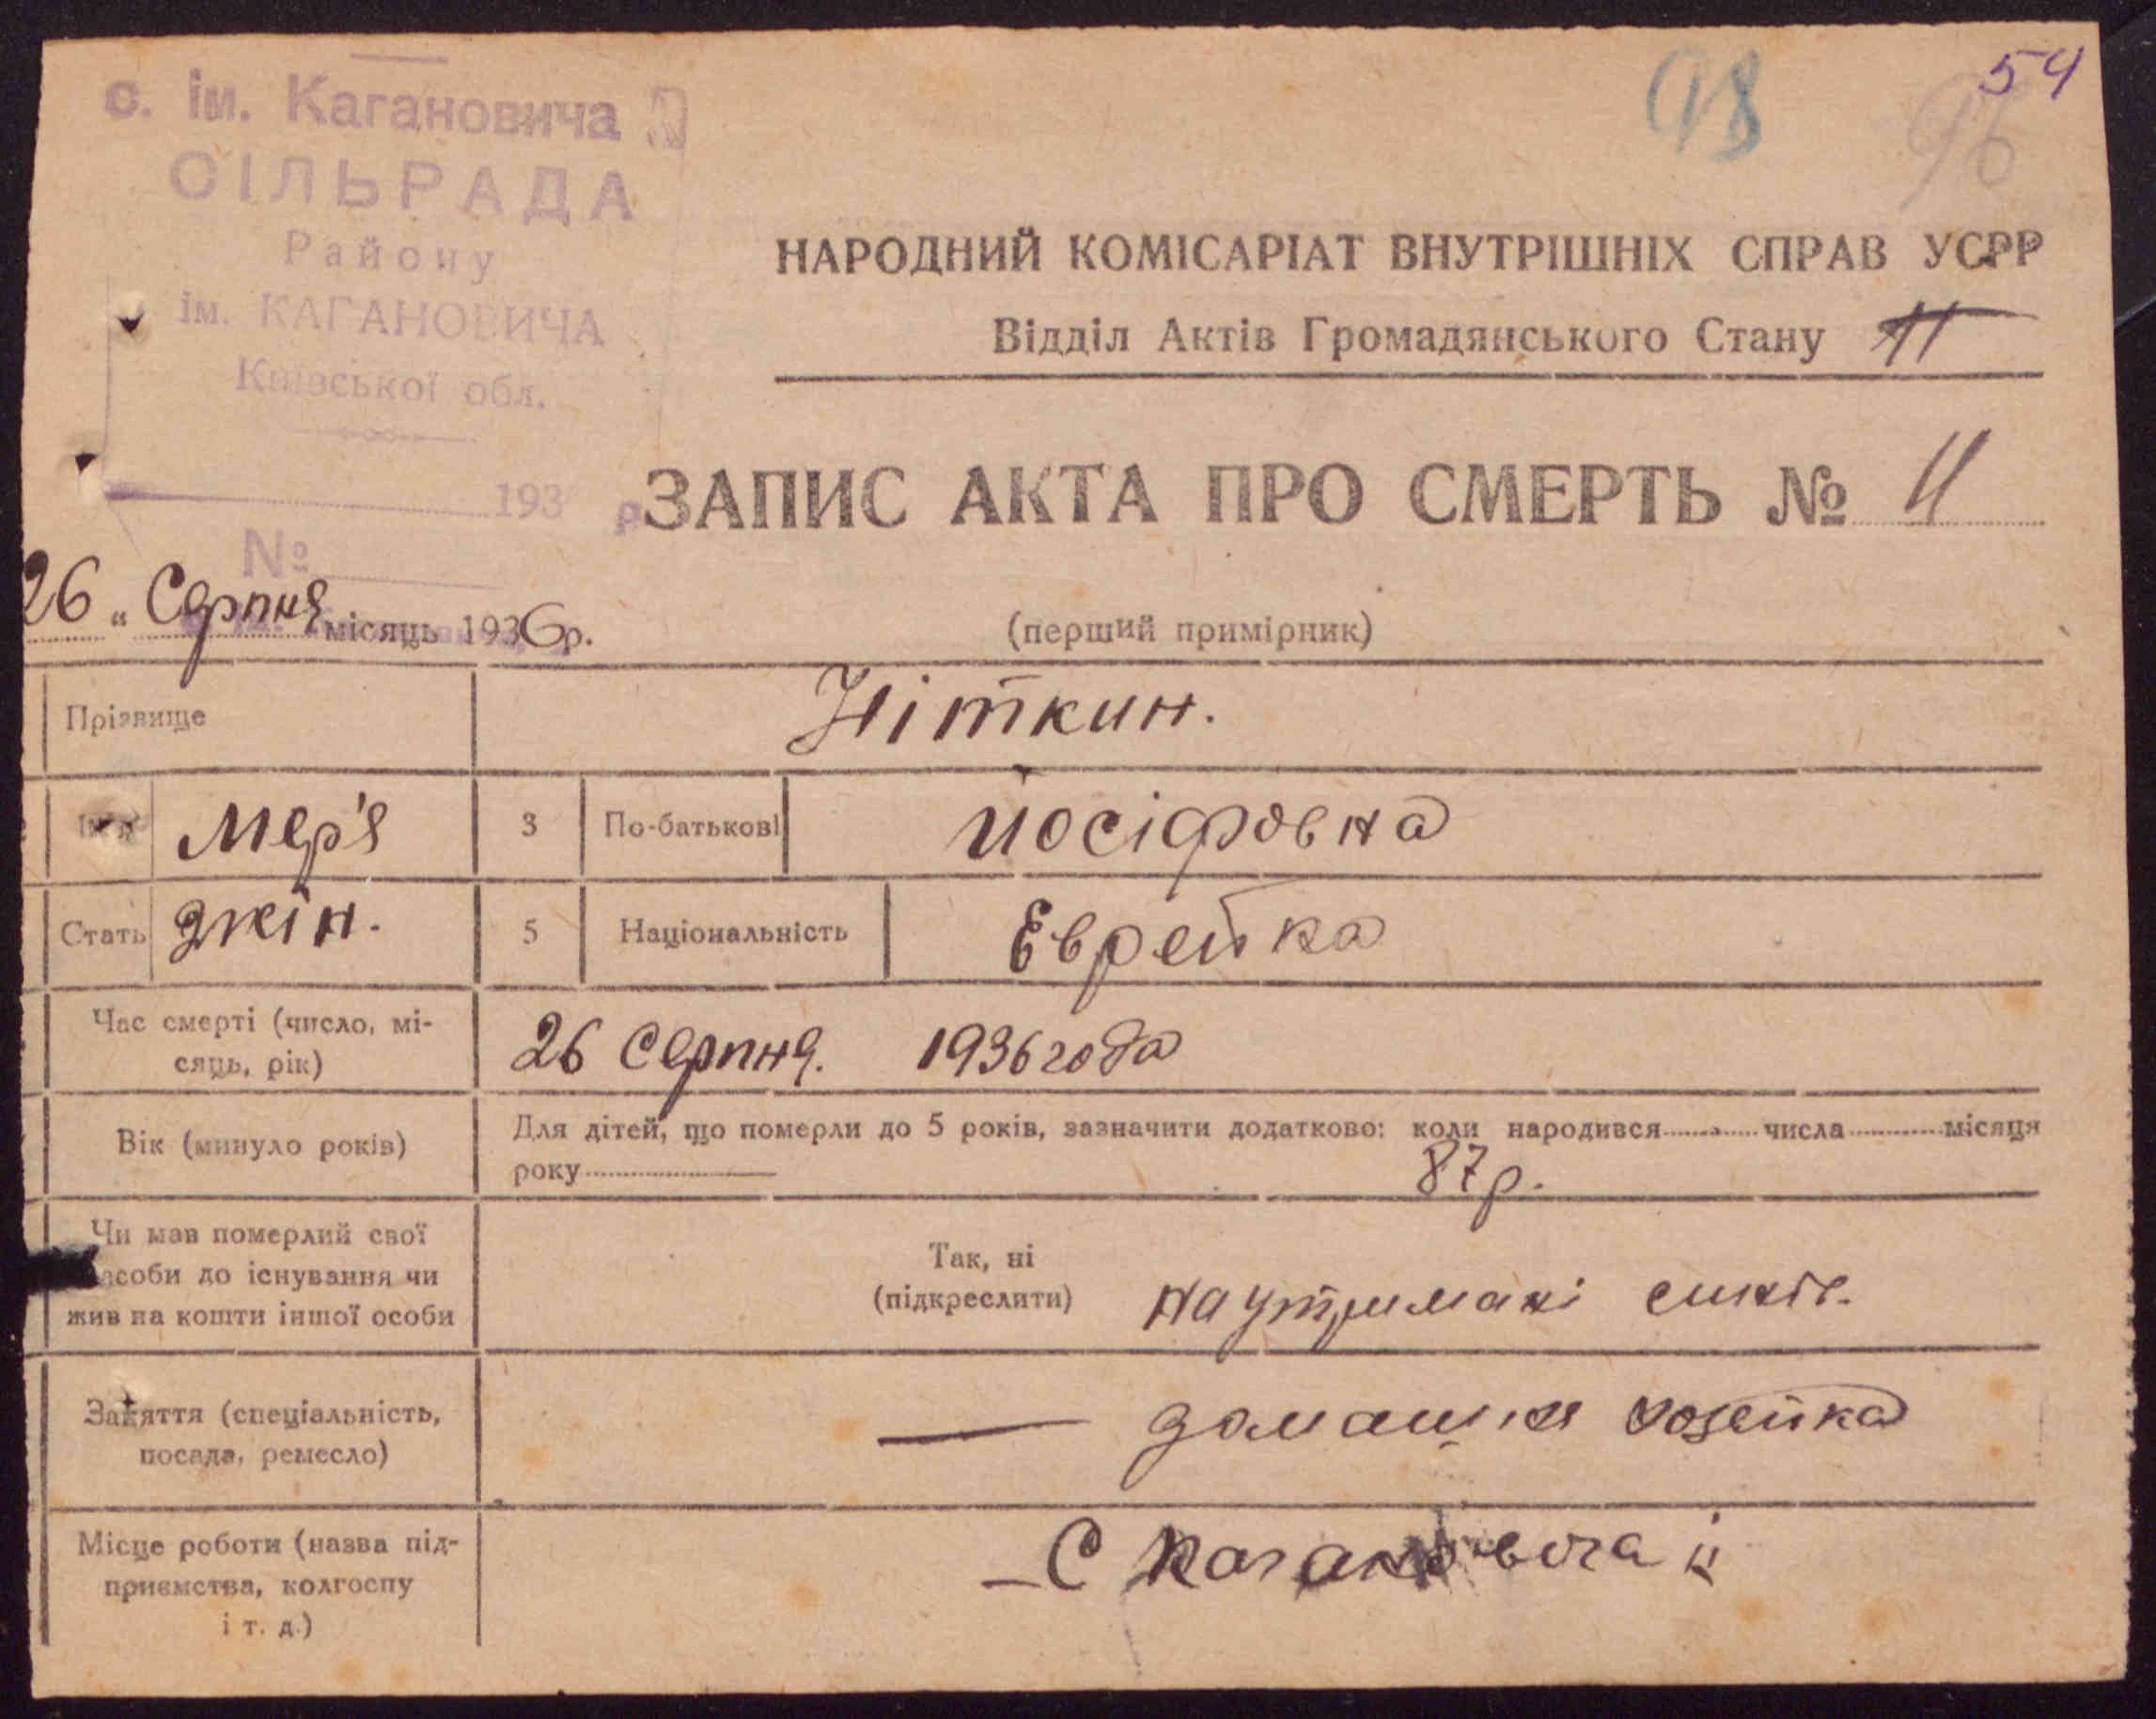 98
96
54
с. ім. Кагановича
СІЛЬРАДА
Району
ім. КАГАНОВИЧА
Київської обл.
193 р
№
НАРОДНИЙ КОМІСАРІАТ ВНУТРІШНІХ СПРАВ УСРР
Відділ Актів Громадянського Стану 11
ЗАПИС АКТА ПРО СМЕРТЬ № 11
26 " Серпня місяць 1936 р.
(перший примірник)
Прізвище Ніткин.
Ім'я Мер'я 3 По-батькові Йосіфовна
Стать жін. 5 Національність Еврейка
Час смерті (число, мі-
сяць, рік)
26 Серпня. 1936 года
Вік (минуло років)
Для дітей, що померли до 5 років, зазначити додатково: коли народився числа місяця
року 87 р.
Чи мав померлий свої
засоби до існування чи
жив на кошти іншої особи
Так, ні
(підкреслити) на утримані синів.
Заняття (спеціальність,
посада, ремесло)
— домашня хозейка
Місце роботи (назва під-
приємства, колгоспу
і т. д.)
– С Кагановича